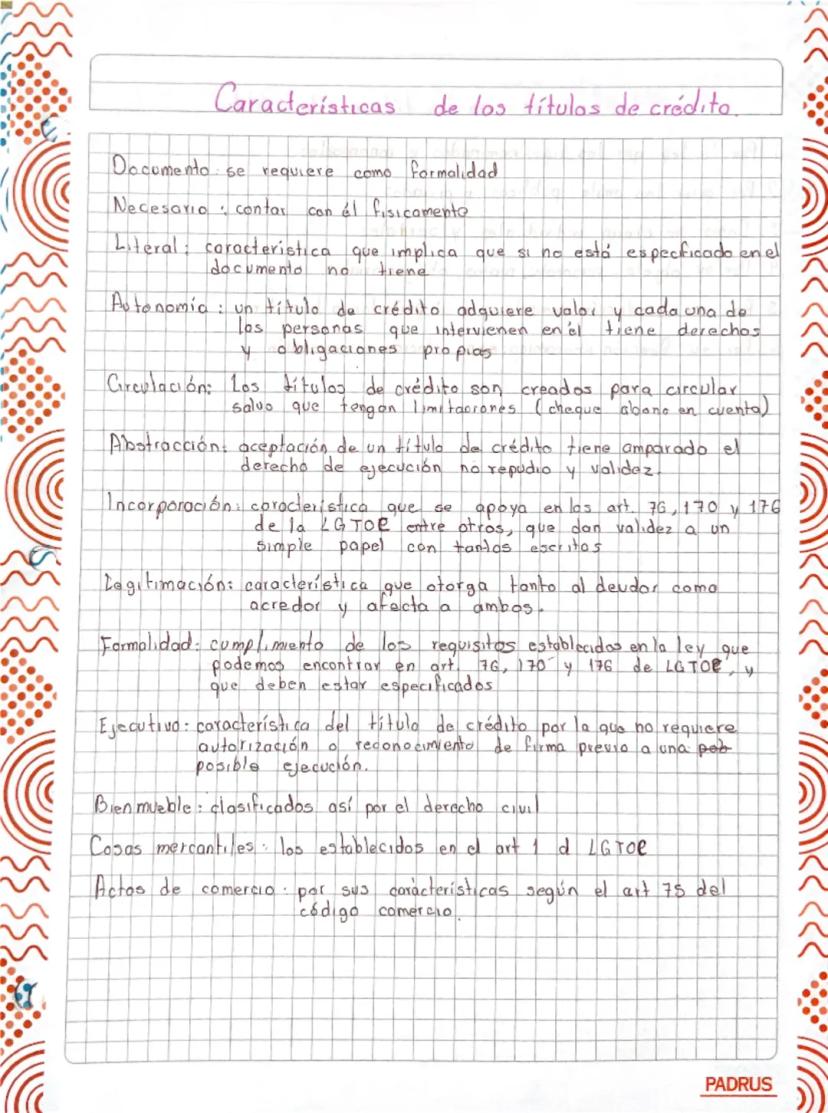 Características de los títulos de crédito.
Documento: se requiere como formalidad
Necesario: contar con él fisicamente
Literal: característica que implica que si no está especificado en el
documento no tiene
Autonomía: un título de crédito adquiere valor y cada una de
las personas que intervienen en él tiene derechos
y obligaciones propias
Circulación: Los títulos de crédito son creados para circular
salvo que tengan limitaciones (cheque abono en cuenta)
Abstracción: aceptación de un título de crédito tiene amparado el
derecho de ejecución no repudio y validez.
Incorporación: característica que se apoya en los art. 76, 170 y 176
de la LGTOC entre otros, que dan validez a un
simple papel con tantos escritos
Legitimación: característica que otorga tanto al deudor como
acredor y afecta a ambos.
Formalidad: cumplimiento de los requisitos establecidos en la ley que
podemos encontrar en art. 76, 170 y 176 de LGTOC, y
que deben estar especificados
Ejecutivo: característica del título de crédito por la que no requiere
autorización o reconocimiento de firma previo a una
posible ejecución.
Bien mueble: clasificados así por el derecho civil
Cosas mercantiles: los establecidos en el art 1 d LGTOC
Actos de comercio: por sus carácterísticas según el art 75 del
código comercio.
PADRUS